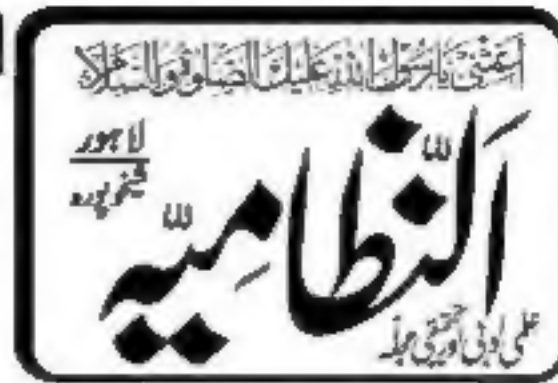 اغثنی یا رسول اللہ علیک الصلوۃ والسلام
لاہور
شیخوپورہ
النظامیہ
علمی ادبی اور تحقیقی مجلہ